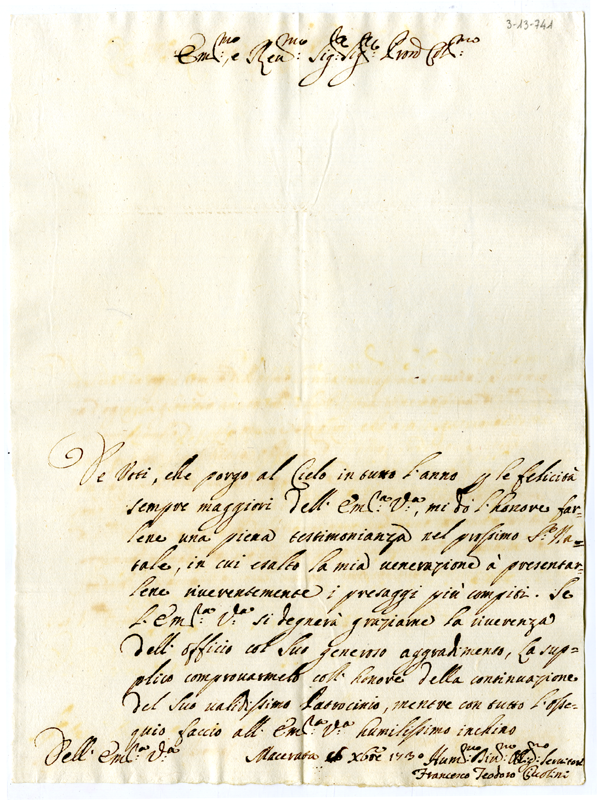 3-13-741
Em.mo, e Reu.mo Sig.r Sig.r Pron Col.mo
De Voti, che porgo al Cielo in tutto l'anno p le felicità
sempre maggiori dell'Em.za V.ra, mi dò l'honore far-
lene una piena testimonianza nel prossimo S.to Na-
tale, in cui esalto la mia venerazione à presentar-
lene riuerentemente i presaggi più compiti. Se
l'Em.za V.ra si degnerà graziarne la riuerenza
dell'officio col Suo generoso aggradimento, la sup-
plico comprouarmelo coll'honore della continuazione
del Suo validissimo Patrocinio, mentre con tutto l'osse-
quio faccio all'Em.za V.ra humilissimo inchino
Dell'Em.za V.ra Macerata Xbre 1730 Hum.mo Diu.mo Seruitore
Francesco Teodoro